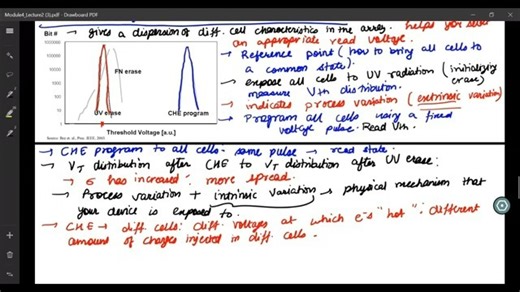 Module4_Lecture2 (3).pdf - Drawboard PDF
Bit #
→ gives a dispersion of diff. cell characteristics in the array. helps you set
an appropriate read voltage.
→ Reference point (how to bring all cells to
a common state).
→ expose all cells to UV radiation (initializing
erase)
measure Vth distribution.
→ indicates process variation (extrinsic variation)
→ Program all cells using a fixed
voltage pulse. Read Vth
1000000
100000
10000
1000
FN erase
UV erase
CHE program
Threshold Voltage [a.u.]
→ CHE program to all cells: same pulse → read state.
→ VT distribution after CHE to VT distribution after UV erase:
→ σ has increased: more spread.
→ Process variation + intrinsic variation → physical mechanism that
your device is exposed to.
→ CHE → diff cells: diff. voltages at which e-s "hot": different
amount of charges injected in diff. cells.